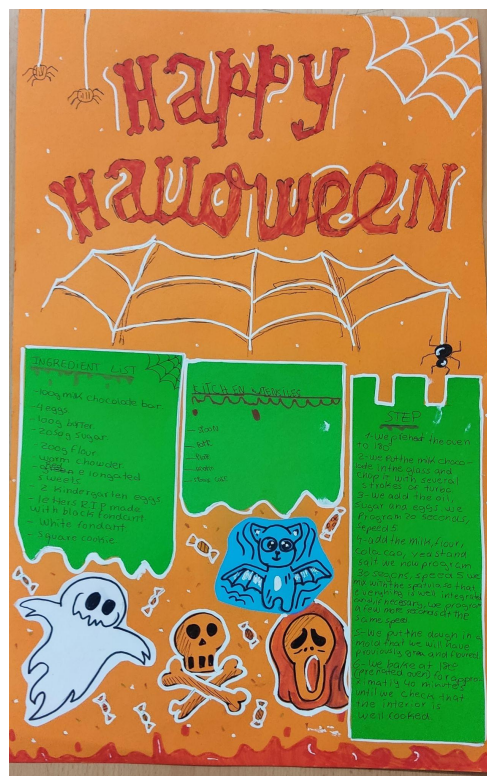 Happy
Halloween
INGREDIENT LIST
-100g milk chocolate bar
-4 eggs
-100g butter
-200g flour
-worm chowder
elongated
sweets
2 Kindergarten eggs
-letters RIP made
with black fondant
-White fondant
-Square cookie
KITCHEN
STEP
1-we preheat the oven
to 180
2-we put the milk choco-
late in the glass and
chop it with several
strokes of turbo
3-we add the oil,
sugar and eggs we
program 20 seconds,
speed 5
4-add the milk, flour,
cola cao, yeast and
salt we now program
30 seconds, speed 5 we
mix with the spatula so that
everything is well integrated
or if necessary, we program
a few more seconds at the
same speed.
5-we put the dough in a
mold that we will have
previously and
6-we bake at 180
(preheated oven) for approxi-
matly 40 minutes
until we check that
the interior is
well cooked.